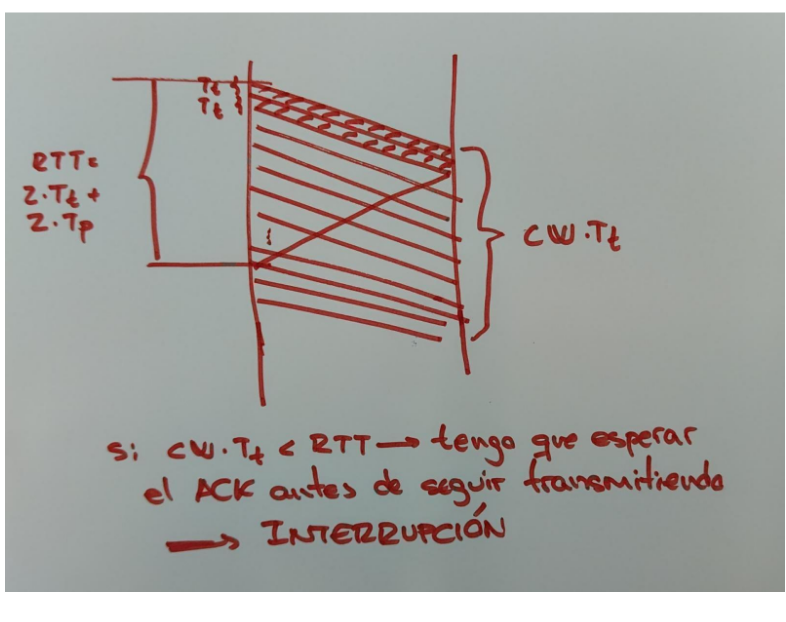 Tt
Tt
RTT=
2·Tt +
2·Tp
CW·Tt
Si CW·Tt < RTT → tengo que esperar
el ACK antes de seguir transmitiendo
→ INTERRUPCIÓN